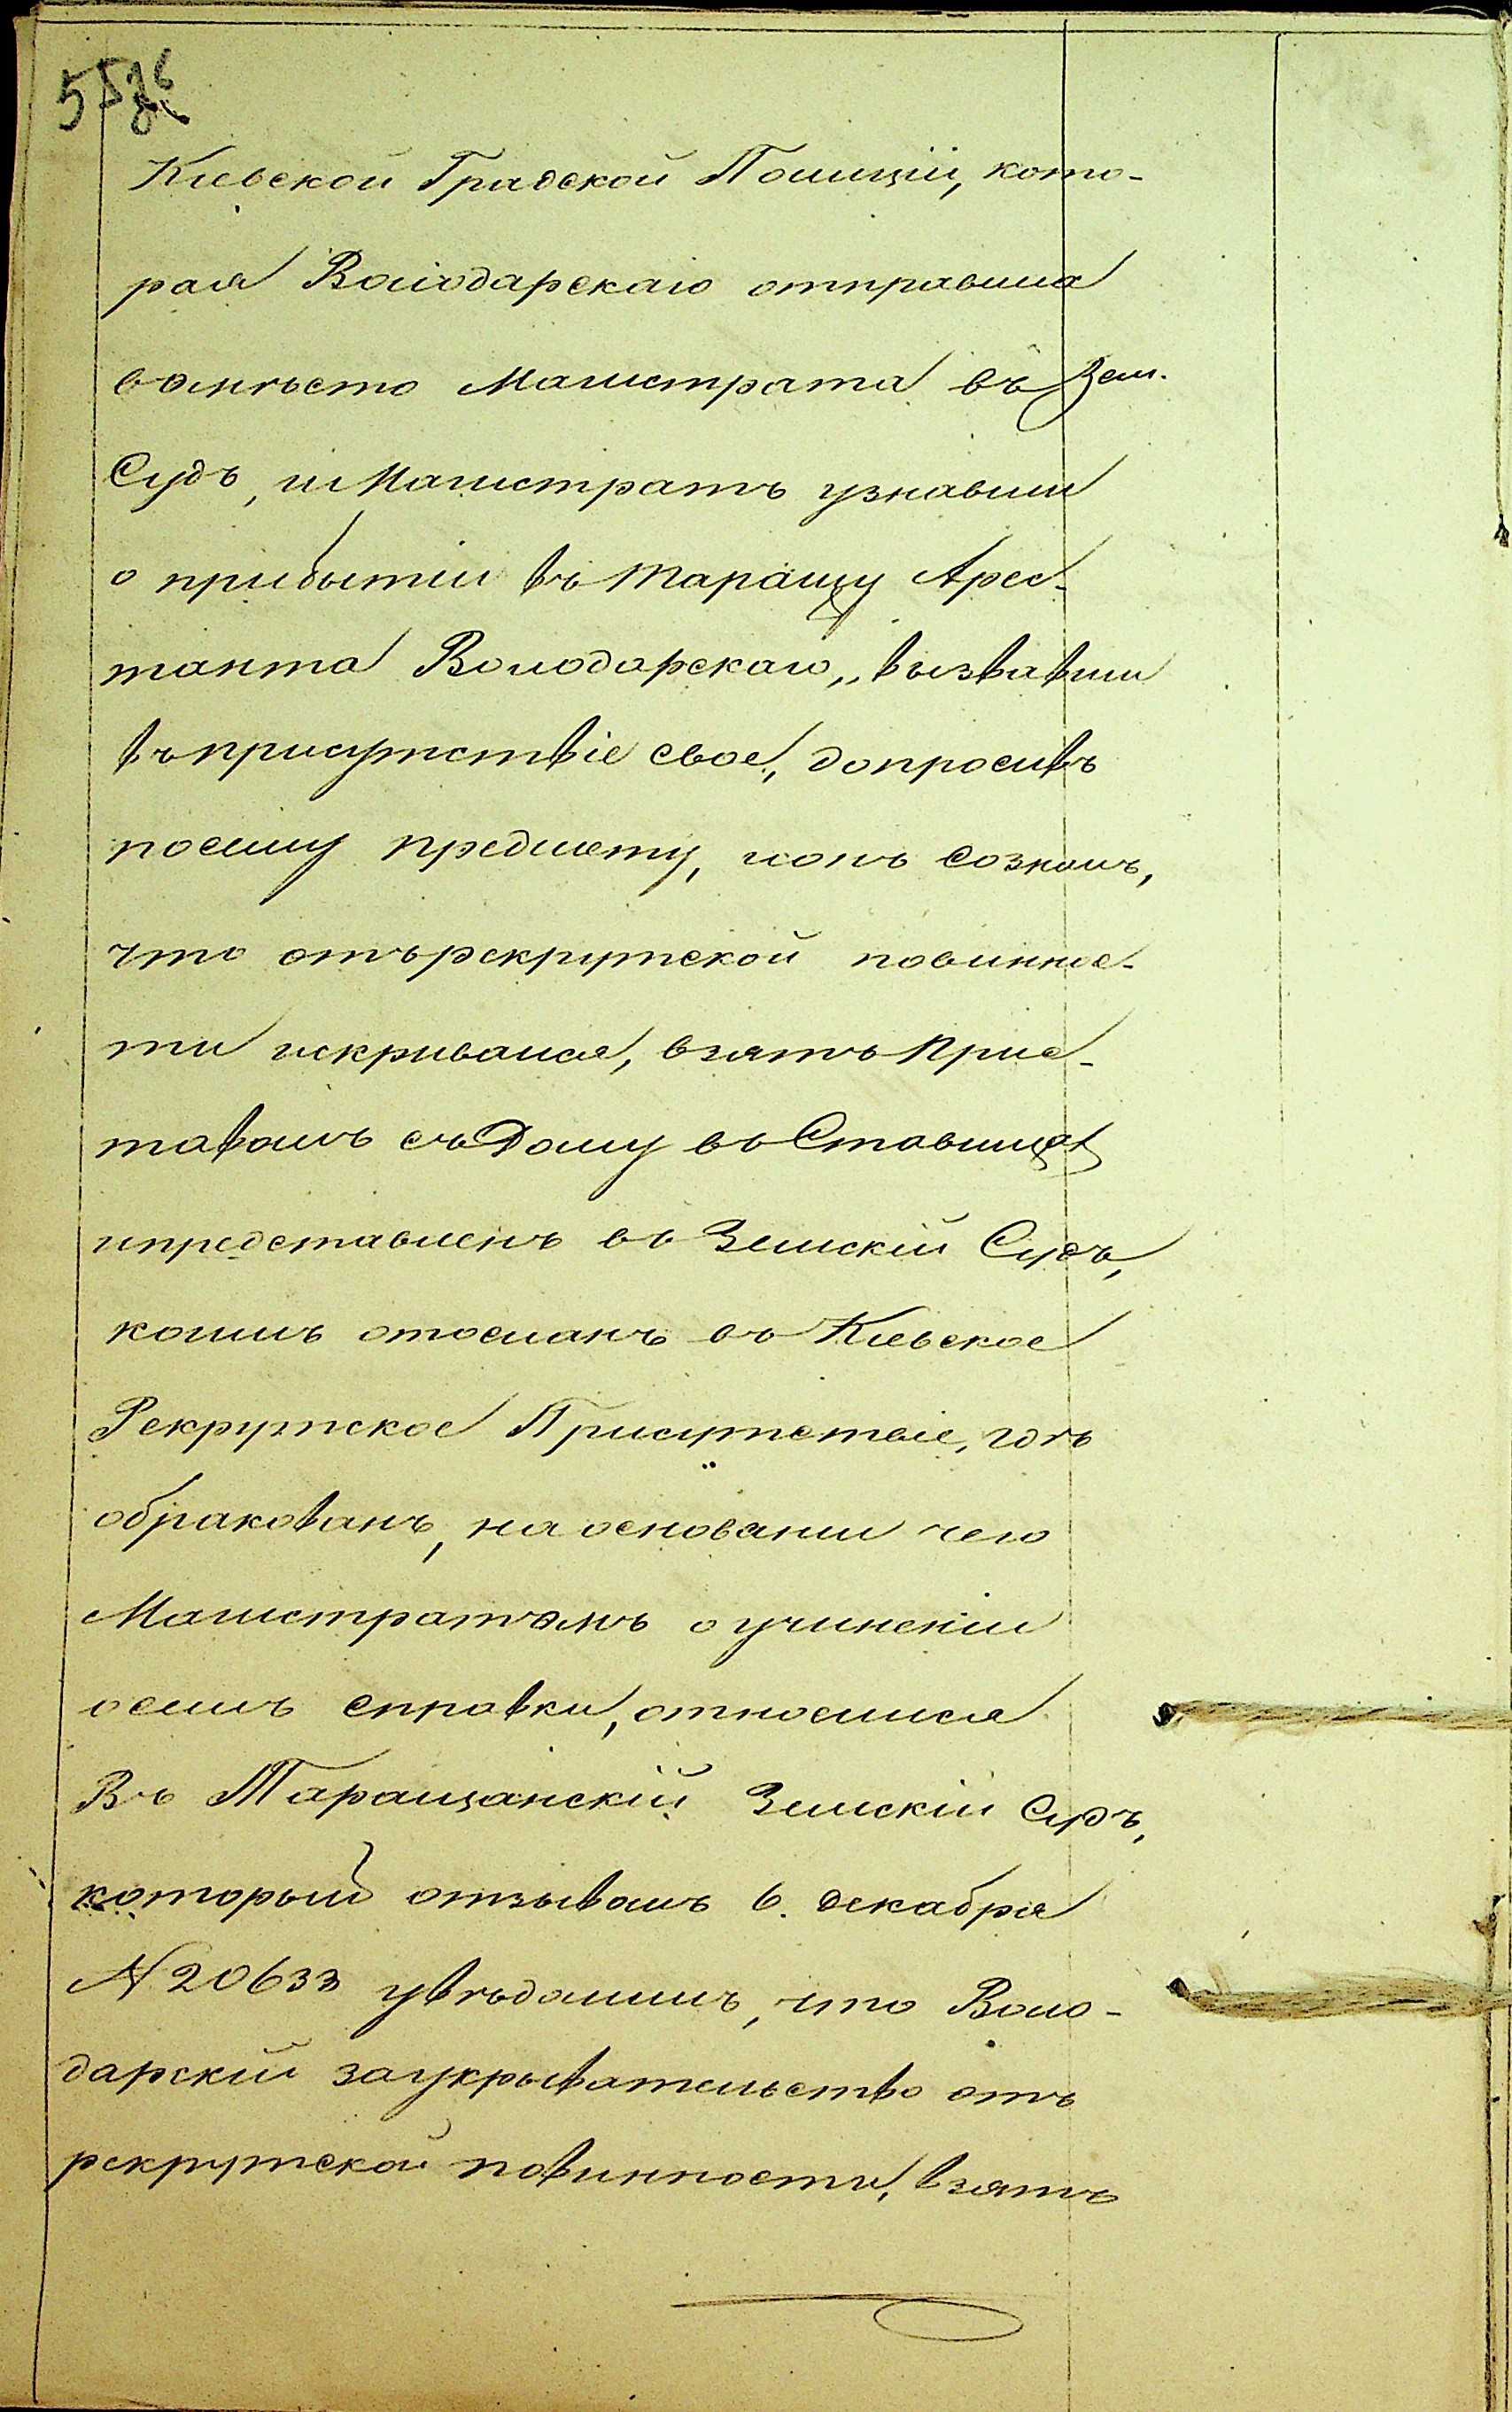 Кіевской Градской Полиціи, кото-
рая Володарскаго отправила
вомѣсто Магистрата въ Зем.
Судъ, и Магистратъ узнавши
о прибытіи въ Таращу Арес-
танта Володарскаго, вызвавши
въ присутствіе свое, допросивъ
посему предмету, ионъ сознался,
что отърекрутской повиннос-
ти искривался, взятъ Прис-
тавомъ съ Дому въ Ставищах
ипредставленъ въ Земскій Судъ,
коимъ отосланъ въ Кіевское
Рекрутское Присутствіе, гдѣ
обракованъ, на основании чего
Магистратомъ о учиненіи
осемъ справки, относился
Въ Таращанскій Земскій Судъ,
который отзывомъ 6. декабря
№ 20633 увѣдомилъ, что Воло-
дарскій заукрывательство отъ
рекрутской повинности, взятъ